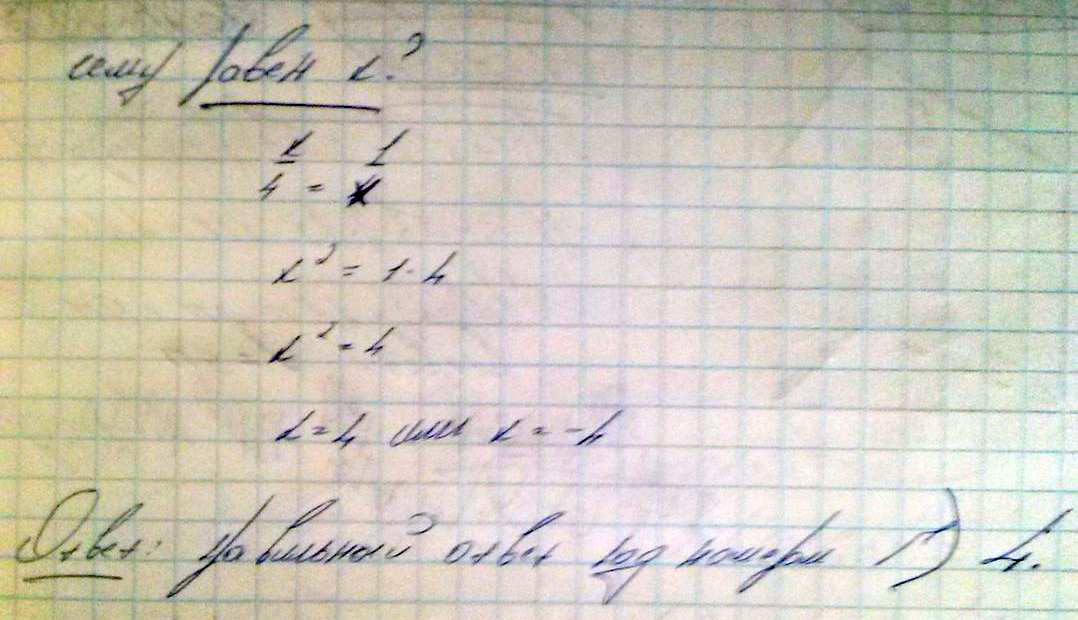 чему равен x?
x/4 = 1/x
x² = 1·4
x² = 4
x = 4 или x = -4
Ответ: правильный ответ под номером Г) 4.